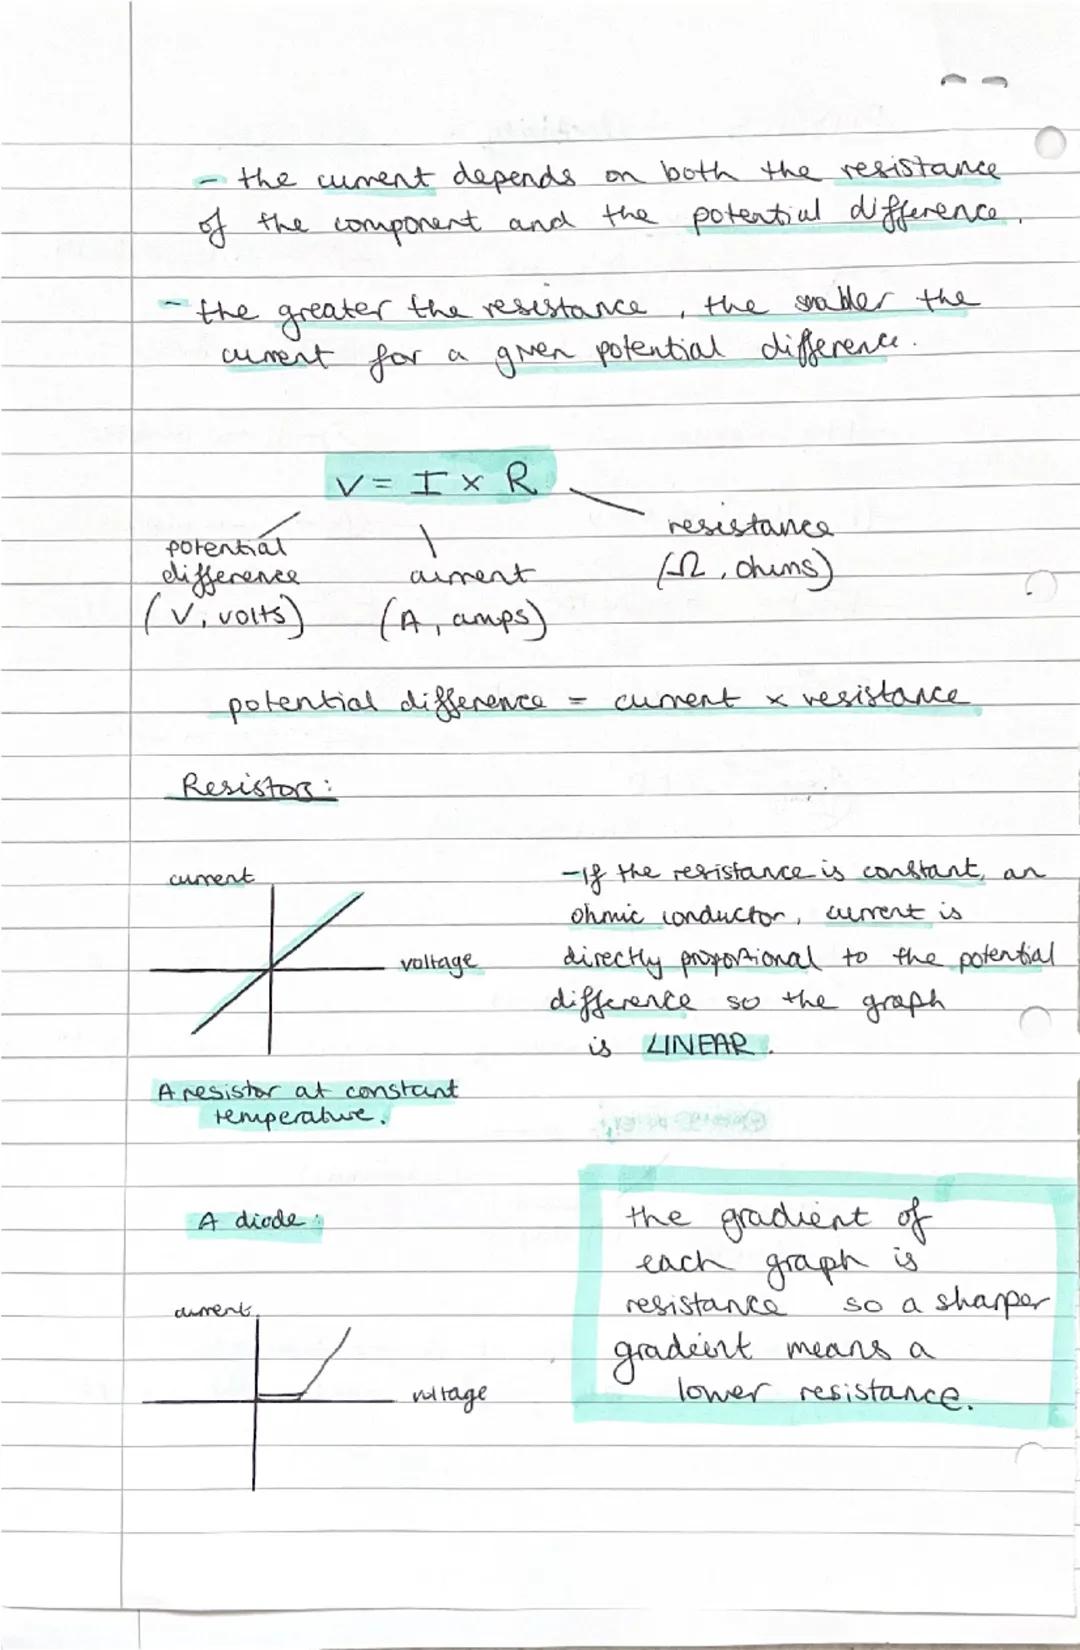 - the current depends on both the resistance
of the component and the potential difference.
- the greater the resistance, the smaller the
current for a given potential difference.
V = I x R
potential
difference
(V, volts)
current
(A, amps)
resistance
(Ω, ohms)
potential difference = current x resistance
Resistors:
current
voltage
A resistor at constant
temperature.
- If the resistance is constant, an
ohmic conductor, current is
directly proportional to the potential
difference so the graph
is LINEAR.
A diode:
current
voltage
the gradient of
each graph is
resistance so a sharper
gradient means a
lower resistance.